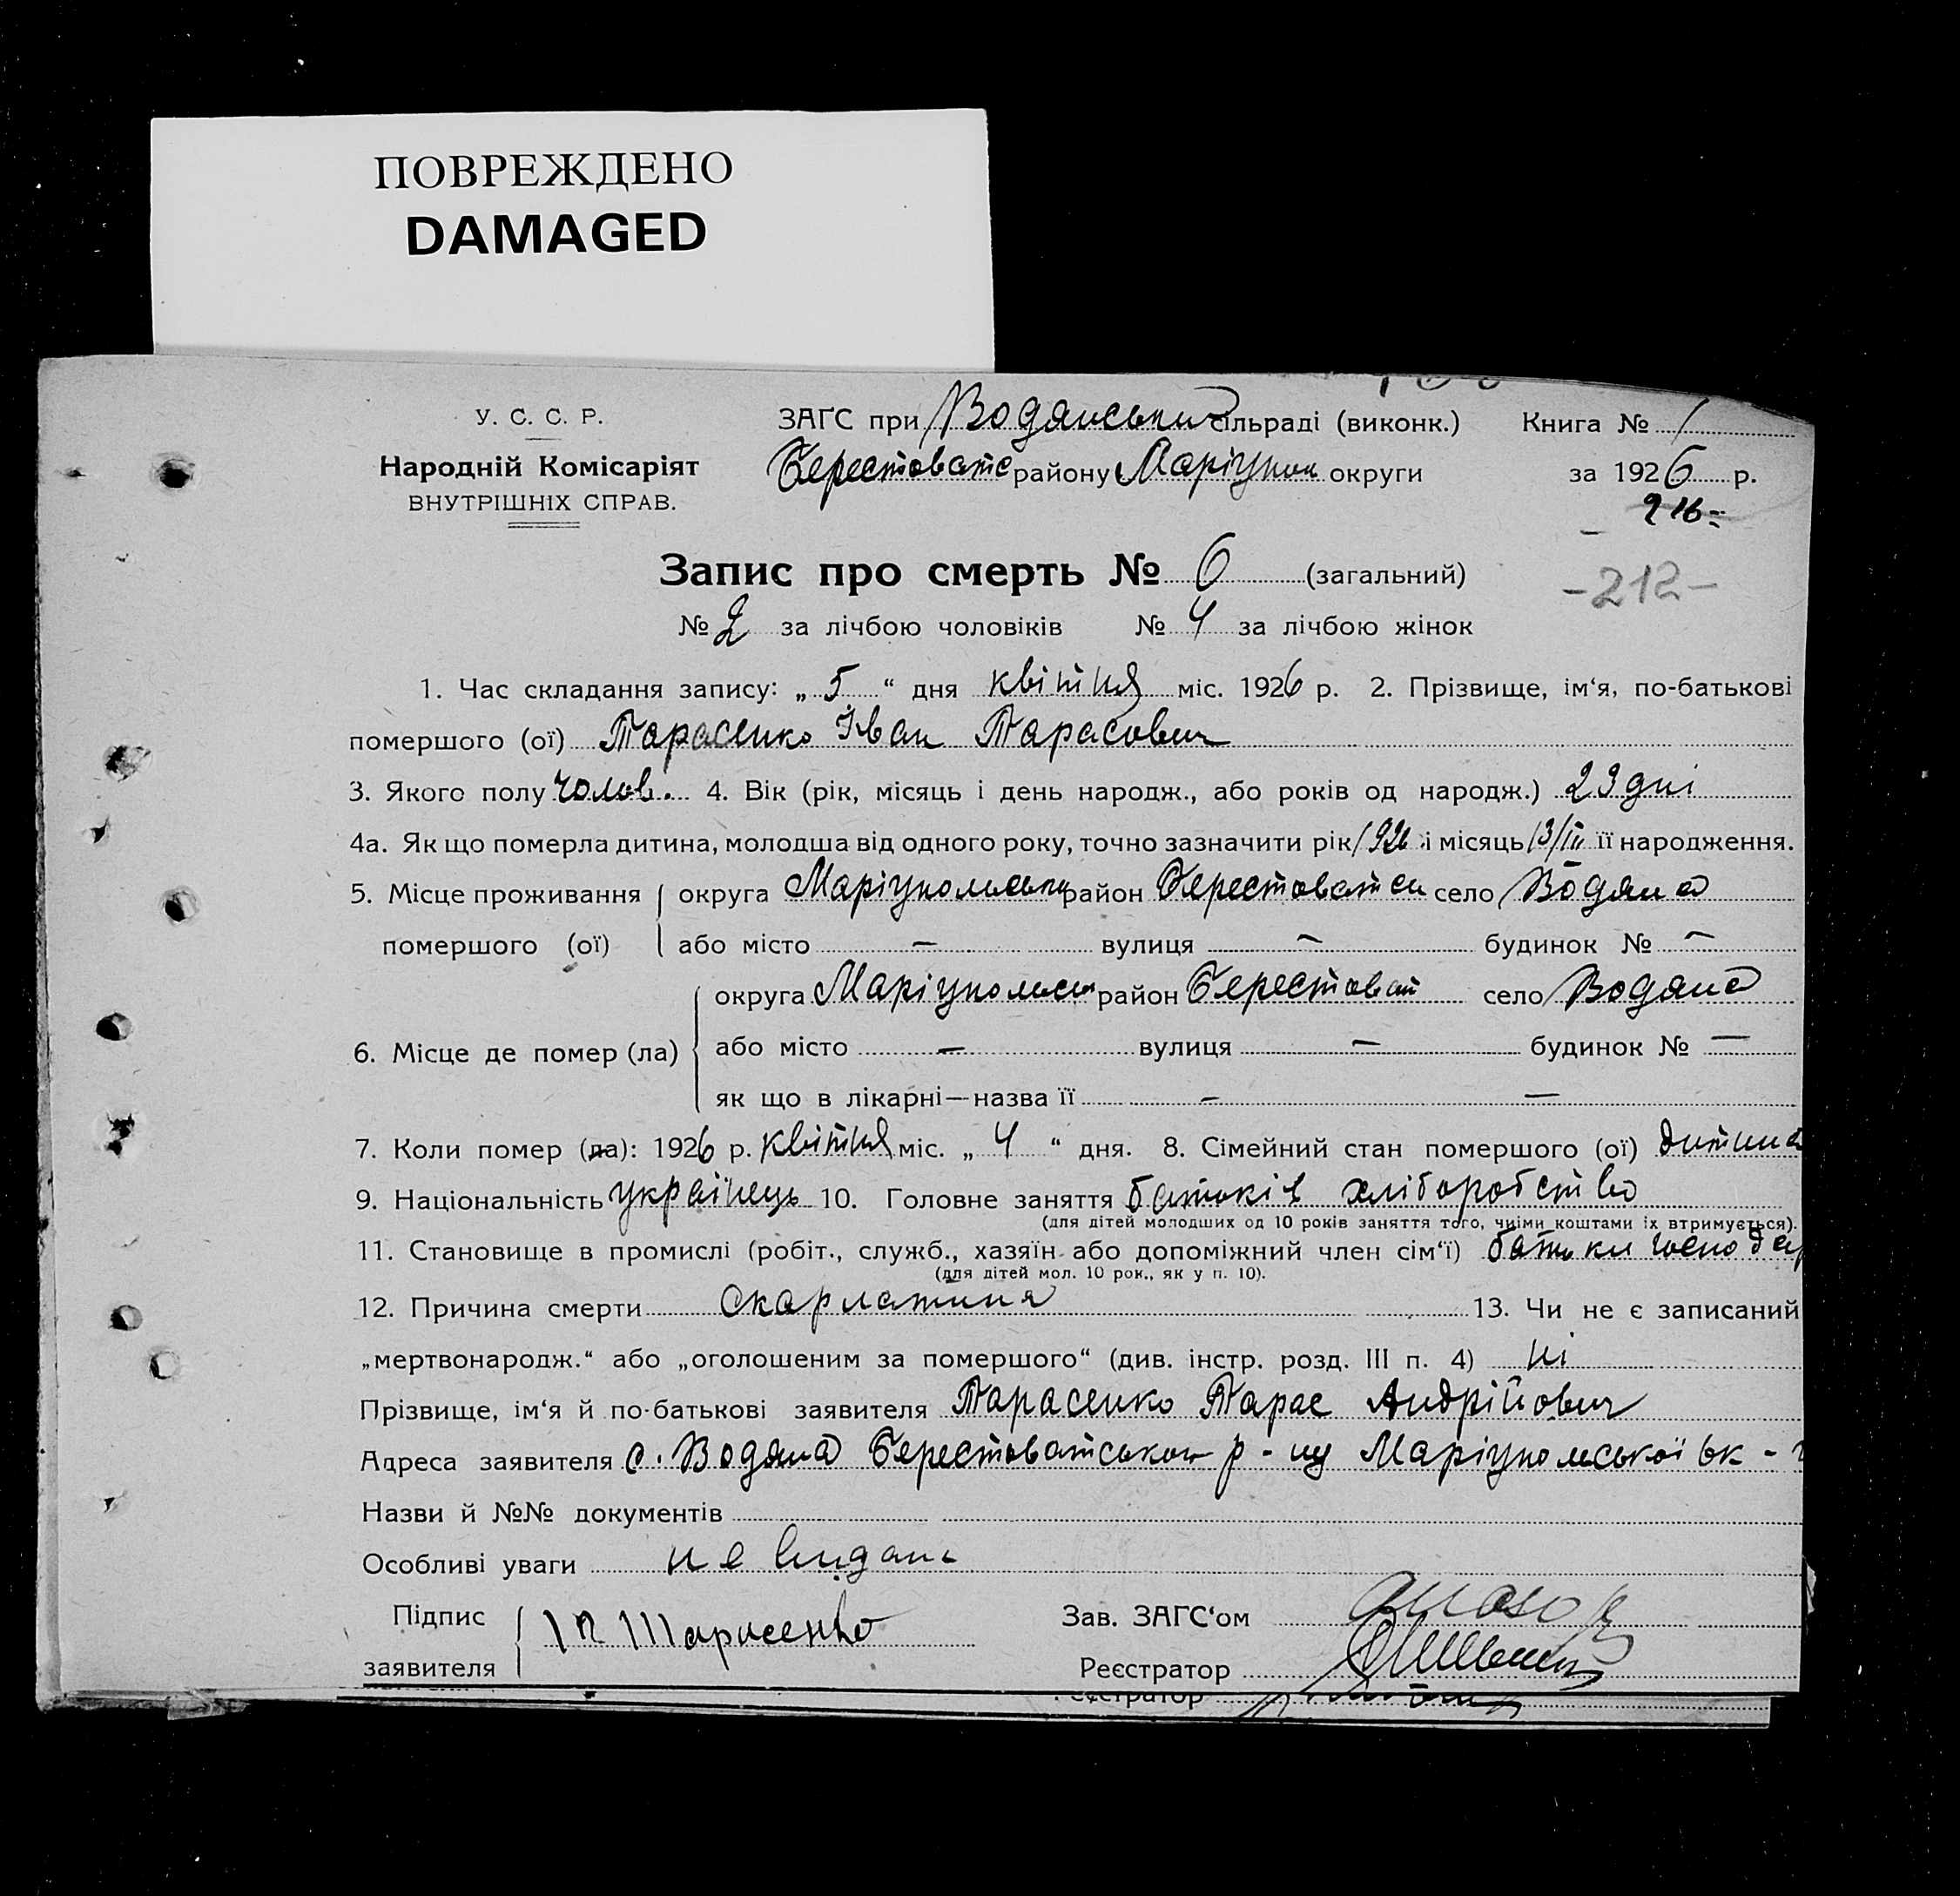 ПОВРЕЖДЕНО
DAMAGED
У. С. С. Р.
Народній Комісаріят
ВНУТРІШНІХ СПРАВ.
ЗАГС при Водянській сільраді (виконк.)
Берестоватс району Маріупол округи
Книга № 1
за 1926 р.
216
-212-
Запис про смерть № 6 (загальний)
№ 2 за лічбою чоловіків № 4 за лічбою жінок
1. Час складання запису: „ 5 “ дня квітня міс. 1926 р. 2. Прізвище, ім‘я, по-батькові
помершого (ої) Тарасенко Іван Тарасович
3. Якого полу чолов. 4. Вік (рік, місяць і день народж., або років од народж.) 23 дні
4а. Як що померла дитина, молодша від одного року, точно зазначити рік 1926 і місяць 13/III її народження.
5. Місце проживання округа Маріупольськи район Берестоватськ село Водяна
помершого (ої) або місто — вулиця — будинок № —
округа Маріупольськ район Берестоват село Водяна
6. Місце де помер (ла) або місто — вулиця — будинок № —
як що в лікарні—назва її — —
7. Коли помер (ла): 1926 р. квітня міс. „ 4 “ дня. 8. Сімейний стан помершого (ої) дитина
9. Національність українець 10. Головне заняття батьків хліборобство
(для дітей молодших од 10 років заняття того, чиїми коштами їх втримується).
11. Становище в промислі (робіт., служб., хазяїн або допоміжний член сім‘ї) батьки господар
(для дітей мол. 10 рок., як у п. 10).
12. Причина смерти скарлатина 13. Чи не є записаний
„мертвонародж.“ або „оголошеним за помершого“ (див. інстр. розд. III п. 4) ні
Прізвище, ім‘я й по-батькові заявителя Тарасенко Тарас Андрійович
Адреса заявителя с. Водяна Берестоватського р-ну Маріупольської ок-
Назви й №№ документів
Особливі уваги не видані
Підпис
заявителя Тарасенко
Зав. ЗАГС‘ом
Реєстратор
Реєстратор